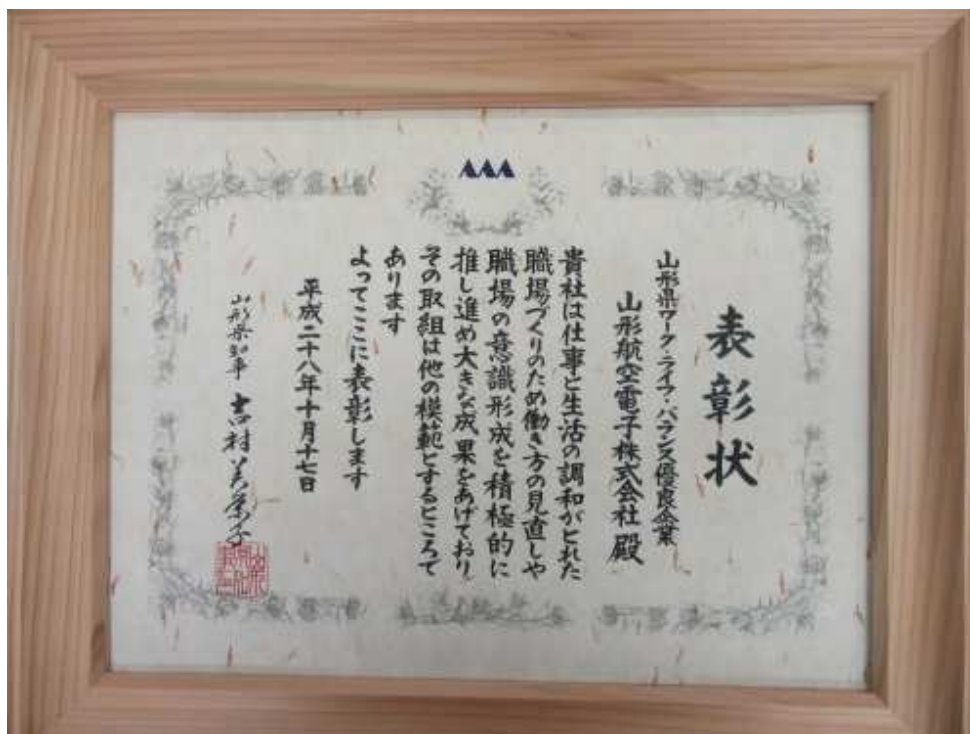 表彰状
山形県ワーク・ライフ・バランス優良企業
山形航空電子株式会社 殿
貴社は仕事と生活の調和がとれた
職場づくりのため働き方の見直しや
職場の意識形成を積極的に
推し進め大きな成果をあげており
その取組は他の模範とするところで
あります
よってここに表彰します
平成二十八年十月十七日
山形県知事 吉村美栄子